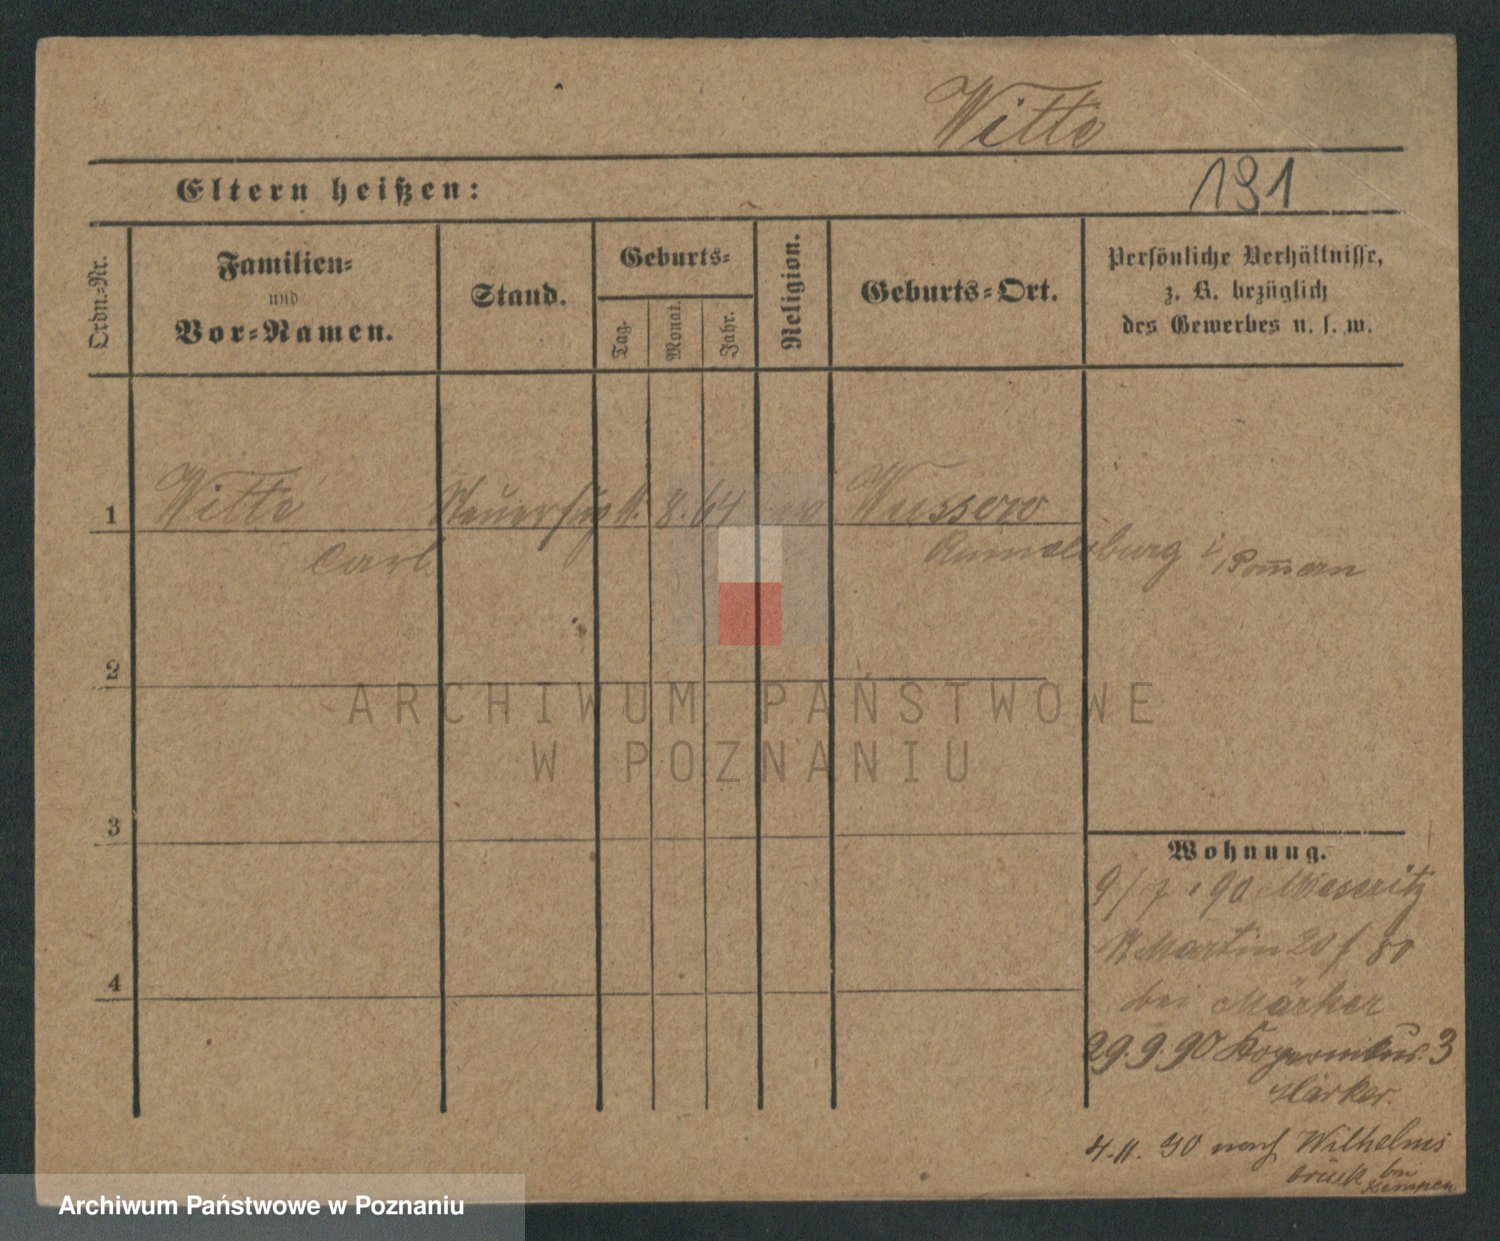 Witte
191
Eltern heißen:
Ordn.-Nr.
Familien-
und
Vor-Namen.
Stand.
Geburts-
Tag.
Monat.
Jahr.
Religion.
Geburts-Ort.
Persönliche Verhältnisse,
z. B. bezüglich
des Gewerbes u. s. w.
1 Witte Steuersup 11. 8. 64 ev Wussow
Carl Rummelsburg i/Pom̄ern
2
3
4
ARCHIWUM PAŃSTWOWE
W POZNANIU
Wohnung.
9/7.90 Meseritz
Martin 20
bei Märker
29.9.90 Kopernikus. 3
Märker.
4.11.90 nach Wilhelms
brück bei
Kempen
Archiwum Państwowe w Poznaniu